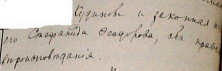 Кудиновъ и законная
его Стефанида Ѳеодорова, оба право
вѣроисповѣданія.